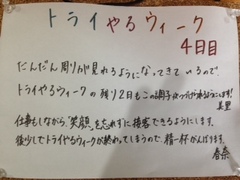 トライやるウィーク
4日目
だんだん周りが見れるようになってきているので、
トライやるウィークの残り2日もこの調子でがんばります!
美里
仕事もしながら"笑顔"を忘れずに接客できるようにします。
後少しでトライやるウィークが終わってしまうので、精一杯がんばります。
春奈